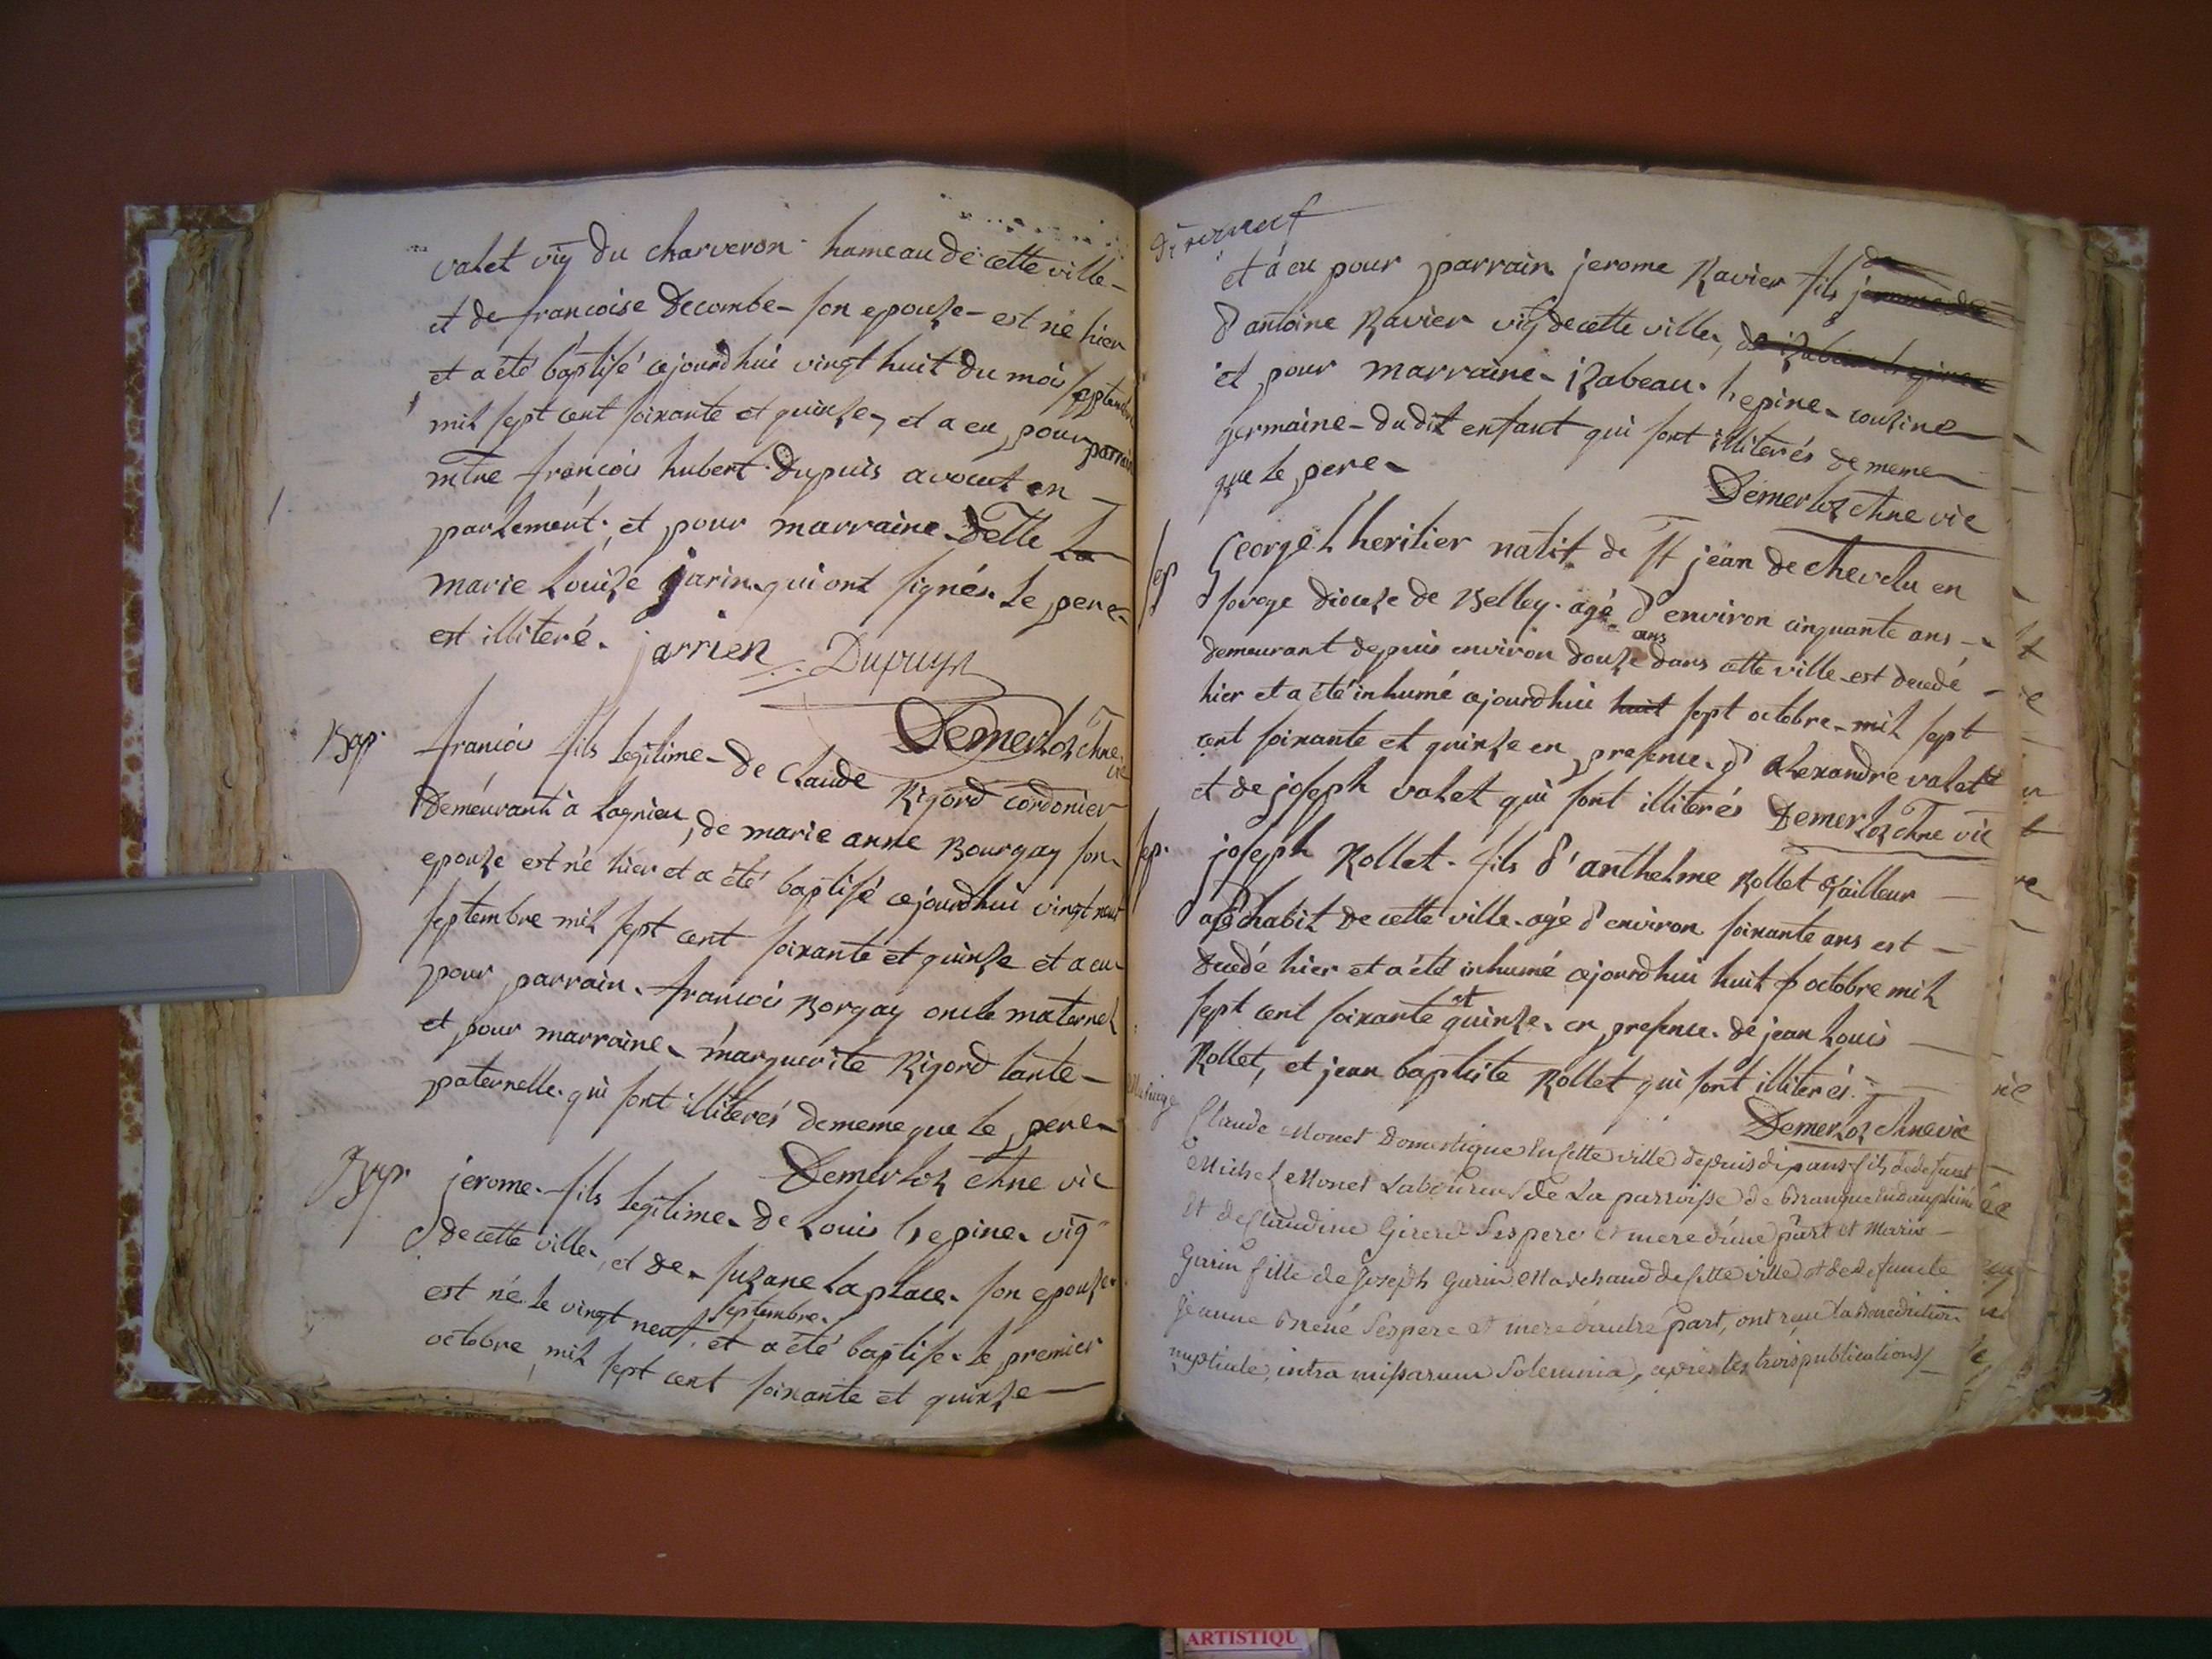 valet vig du charveron hameau de cette ville
et de francoise Decombe son epouse est né hier
et a été baptisé cejourdhui vingt huit du mois septembre
mil sept cent soixante et quinze, et a eu pour parrain
mtre françois hubert Dupuis avocat en
parlement, et pour marraine Delle La
marie Louise jarin qui ont signés. Le pere
est illiteré. jarrien Dupuys
Demerloz chne vic
Bap. francois fils legitime de Claude Rigord cordonier
Demeurant à Lagnieu, de marie anne Bourgay son
epouse est né hier et a été baptisé cejourdhui vingt neuf
septembre mil sept cent soixante et quinze et a eu
pour parrain francois Borgay oncle maternel
et pour marraine marguerite Rigord tante
paternelle qui sont illiterés de meme que le pere
Demerloz chne vic
Bap. jerome fils legitime de Louis Lepine vig
de cette ville, et de suzane Laplace son epouse
septembre
est né le vingt neuf et a été baptisé le premier
octobre mil sept cent soixante et quinze
dixneuf
et a eu pour parrain jerome Ravier fils de
d'antoine Ravier vig de cette ville,
et pour marraine izabeau Lepine cousine
germaine dudit enfant qui sont illiterés de meme
que le pere
Demerloz chne vic
sep George L'heritier natif de St jean de chevelu en
savoye Dioceze de Belley agé d'environ cinquante ans
ans
demeurant depuis environ douze dans cette ville est decedé
hier et a été inhumé cejourdhui huit sept octobre mil sept
cent soixante et quinze en presence d'alexandre valet
et de joseph valet qui sont illiterés Demerloz chne vic
sep. joseph Rollet fils d'anthelme Rollet tailleur
d'habit de cette ville agé d'environ soixante ans est
decedé hier et a été inhumé cejourdhui huit octobre mil
et
sept cent soixante quinze en presence de jean Louis
Rollet, et jean baptiste Rollet qui sont illiterés.
Demerloz chne vic
Mariage Claude Monet Domestique en cette ville depuis dix ans fils de defunt
Michel Monet Laboureur de La parroisse de Brangue en dauphiné
Et de Claudine Girerd ses pere et mere d'une part et Marie
Garin fille de Joseph Garin Marchand de cette ville et de defuncte
Jeanne Brené ses pere et mere d'autre part, ont reçu la benediction
nuptiale, intra missarum solemnia, après les trois publications
ARTISTIQU